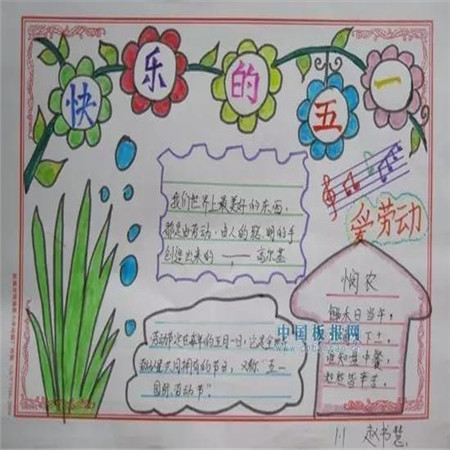 快乐的五一
爱劳动
我们世界上最美好的东西,
都是由劳动、由人的聪明的手
创造出来的 —— 高尔基
悯农
锄禾日当午,
下土,
谁知盘中餐,
粒粒皆辛苦。
劳动节定在每年的五月一日,它是全世界
劳动人民共同拥有的节日,又称"五一
国际劳动节"。
中国板报网
1.1 赵书慧